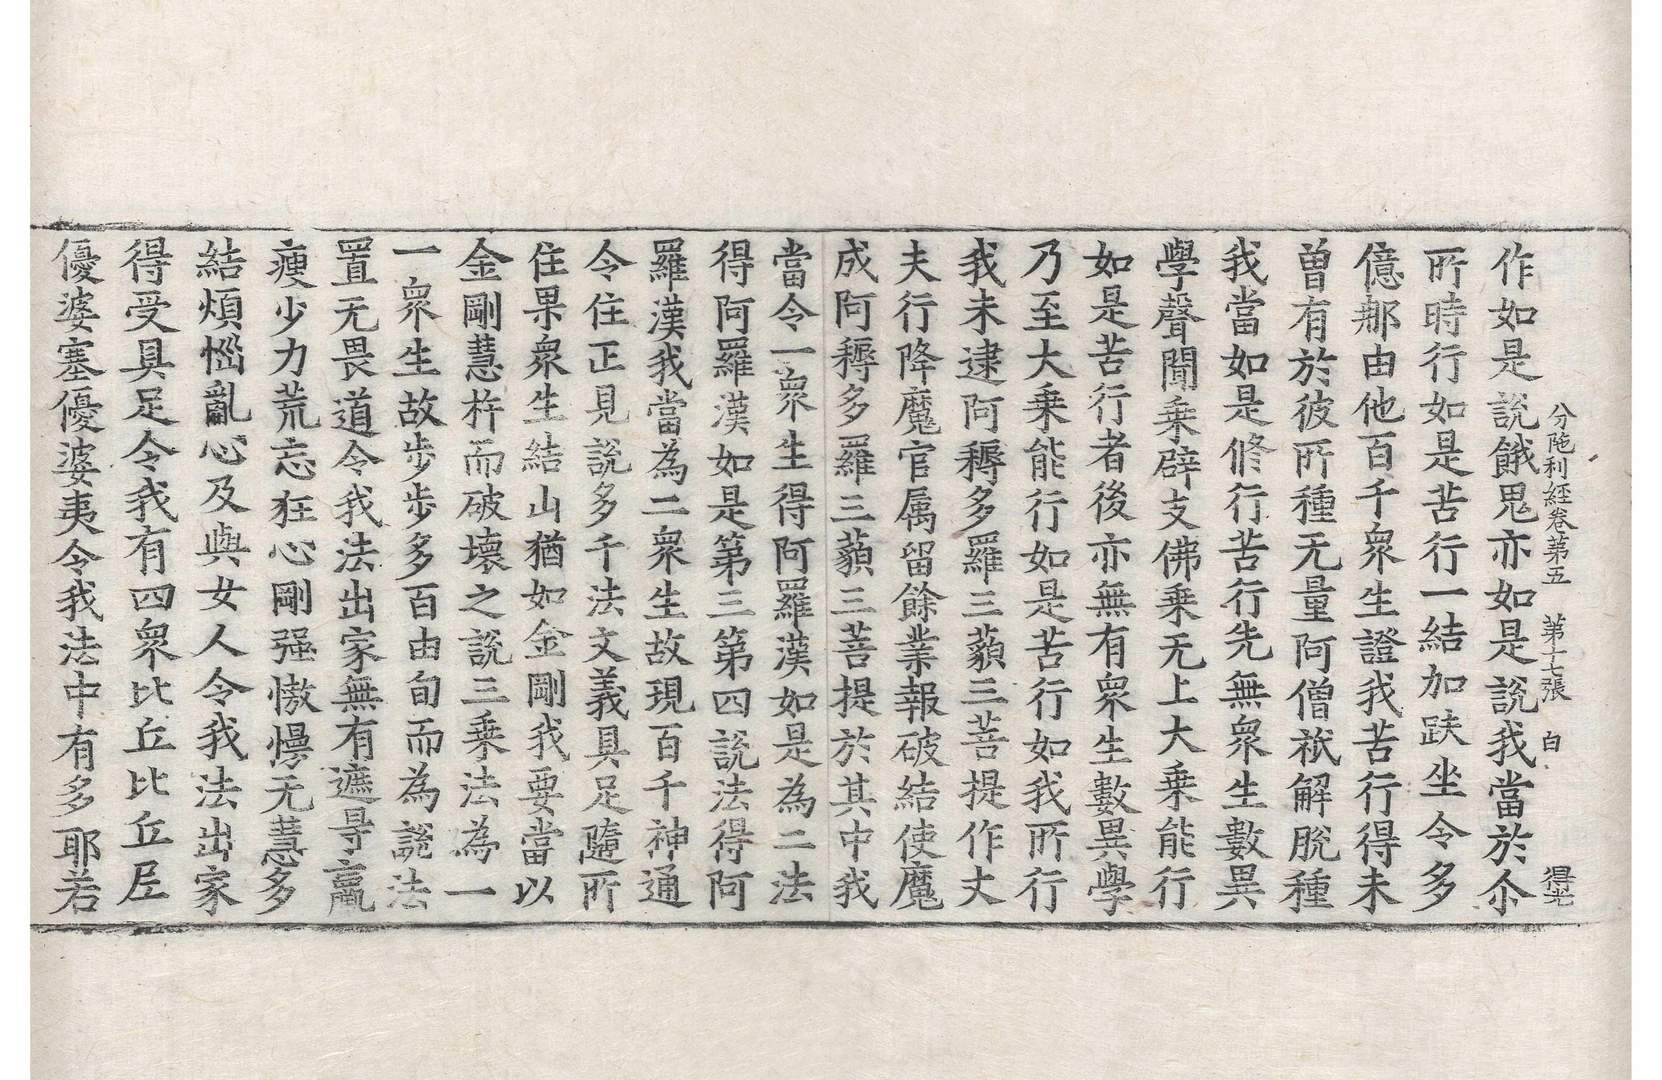 分陁利經卷第五　第十七張　白　得光
作如是說餓鬼亦如是說我當於尒
所時行如是苦行一結加趺坐令多
億那由他百千衆生證我苦行得未
曾有於彼所種无量阿僧祇解脫種
我當如是修行苦行先無衆生數異
學聲聞乗辟支佛乗无上大乗能行
如是苦行者後亦無有衆生數異學
乃至大乗能行如是苦行如我所行
我未逮阿耨多羅三藐三菩提作丈
夫行降魔官属留餘業報破結使魔
成阿耨多羅三藐三菩提於其中我
當令一衆生得阿羅漢如是為二法
得阿羅漢如是第三第四說法得阿
羅漢我當為二衆生故現百千神通
令住正見說多千法文義具足隨所
住果衆生結山猶如金剛我要當以
金剛慧杵而破壞之說三乗法為一
一衆生故步步多百由旬而為說法
置无畏道令我法出家無有遮㝵羸
瘦少力荒忘狂心剛强憿慢无慧多
結煩惱亂心及與女人令我法出家
得受具足令我有四衆比丘比丘尼
優婆塞優婆夷令我法中有多耶若